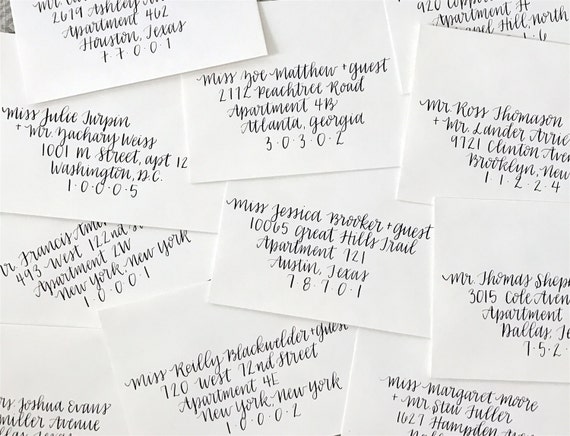 2679 Ashley
Apartment 462
Houston, Texas
7·7·0·0·1
Miss Zoe Matthew + Guest
2112 Peachtree Road
Apartment 4B
Atlanta, Georgia
3·0·3·0·2
920
Hill, North
1·6
Miss Julie Turpin
+ Mr. Zachary Weiss
1001 M Street, Apt 12
Washington, D.C.
1·0·0·0·5
Mr. Ross Thomason
+ Mr. Lander
9721 Clinton
Brooklyn, New
1·1·2·2·4
Francis
493 West 122nd
Apartment 2W
New York, New York
1·0·0·0·1
Miss Jessica Brooker + Guest
10065 Great Hills Trail
Apartment 721
Austin, Texas
7·8·7·0·1
Mr. Thomas
3015 Cole
Apartment
Dallas,
7·5·2
Miss Reilly Blackwelder + Guest
720 West 72nd Street
Apartment 4E
New York, New York
1·0·0·0·2
Joshua Evans
Miller Avenue
Miss Margaret Moore
+ Mr. Stew Fuller
1627 Hampden